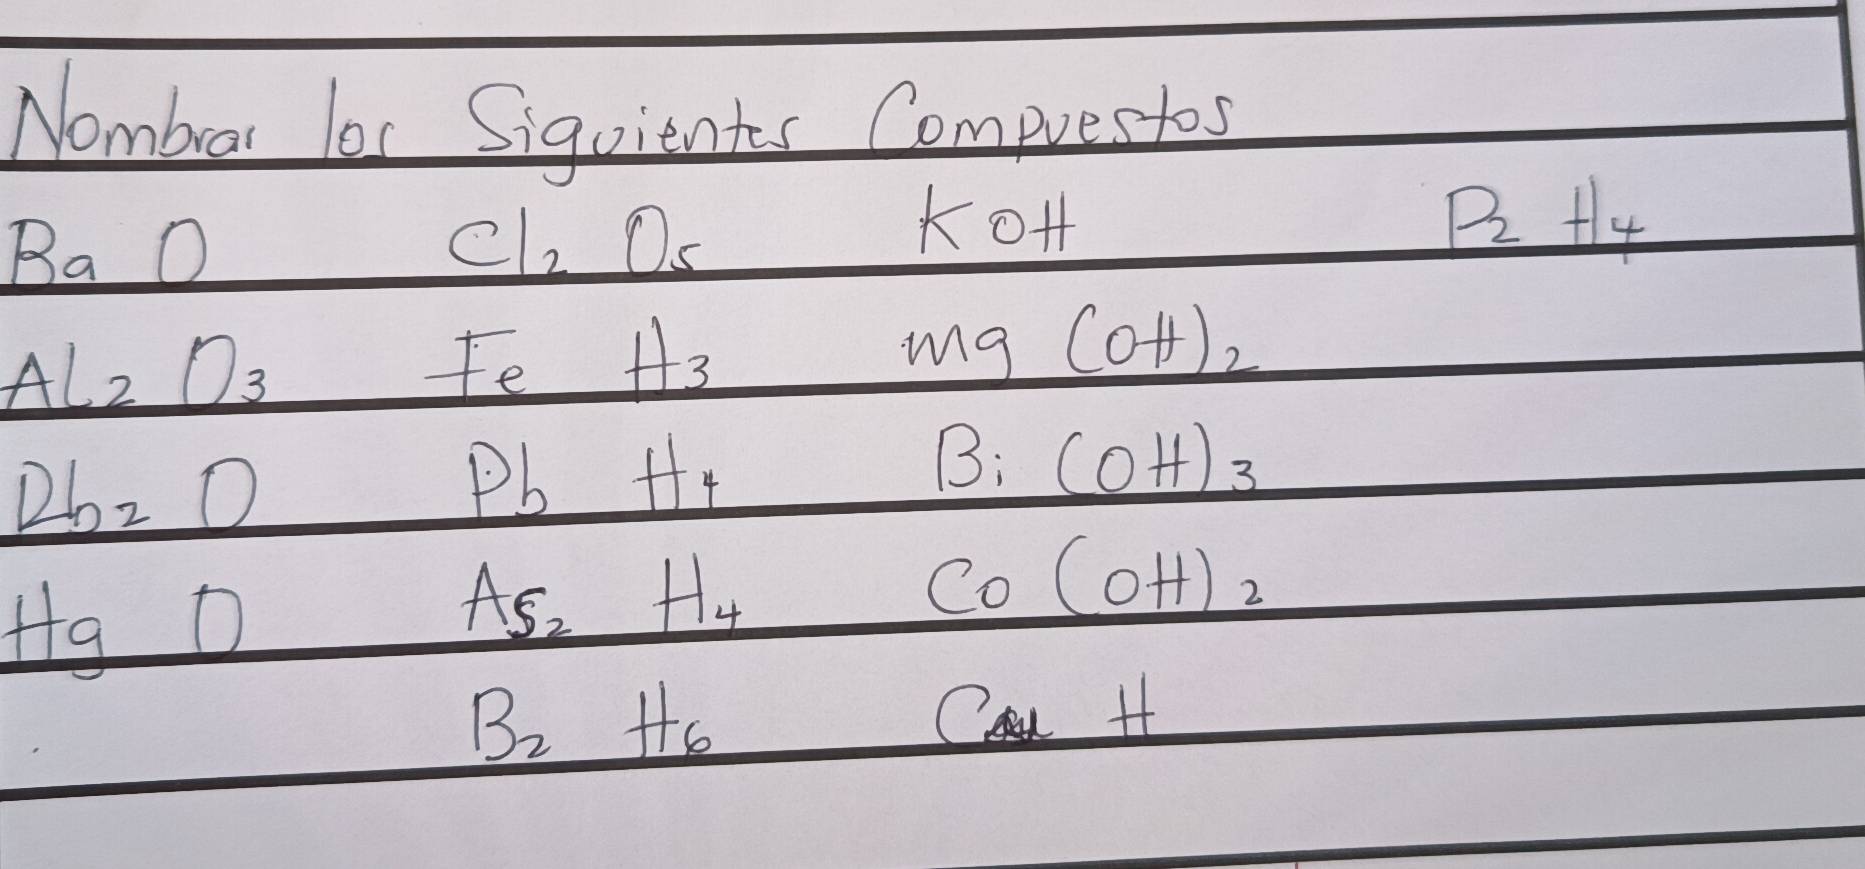 Nombrar los Siguientes Compuestos
Ba O Cl2 O5 KOH P2 H4
Al2 O3 Fe H3 mg (OH)2
Rb2 O Pb H4 Bi (OH)3
Hg O As2 H4 Co (OH)2
B2 H6 H